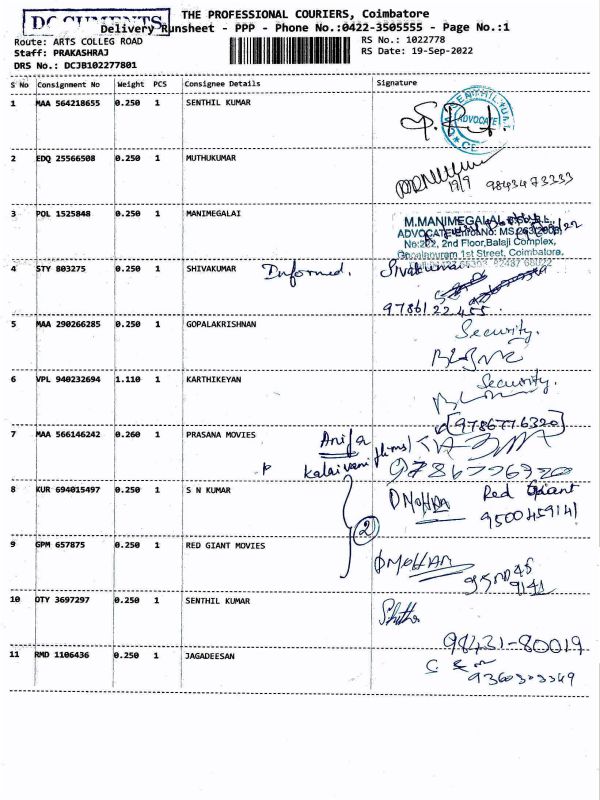 DOCUMENTS
THE PROFESSIONAL COURIERS, Coimbatore
Delivery Runsheet - PPP - Phone No.:0422-3505555 - Page No.:1
Route: ARTS COLLEG ROAD
Staff: PRAKASHRAJ
DRS No.: DCJB102277801
RS No.: 1022778
RS Date: 19-Sep-2022
S No Consignment No Weight PCS Consignee Details Signature
1 MAA 564218655 0.250 1 SENTHIL KUMAR
ADVOCATE
2 EDQ 25566508 0.250 1 MUTHUKUMAR
19/9 9843473333
3 POL 1525848 0.250 1 MANIMEGALAI
M.MANIMEGALAI
ADVOCATE
No:202, 2nd Floor, Balaji Complex,
Gopalapuram 1st Street, Coimbatore.
4 STY 803275 0.250 1 SHIVAKUMAR Informed. Sivakumar
9786122455
5 MAA 290266285 0.250 1 GOPALAKRISHNAN Security.
6 VPL 940232694 1.110 1 KARTHIKEYAN Security.
9786776320
7 MAA 566146242 0.260 1 PRASANA MOVIES Anifa
Kalaivani films
9786776320
8 KUR 694015497 0.250 1 S N KUMAR D MOHAN Red Giant
9500459141
2
9 GPM 657875 0.250 1 RED GIANT MOVIES D MOHAN
95 00 45
9141
10 OTY 3697297 0.250 1 SENTHIL KUMAR
98431-80019
11 RMD 1106436 0.250 1 JAGADEESAN
9360303349